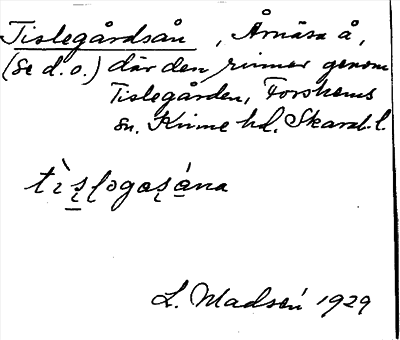 Tislegårdsån, Årnäsa å,
(se d. o.) där den rinner genom
Tislegården, Forshems
sn. Kinne hd. Skarab. l.
L. Madsén 1929